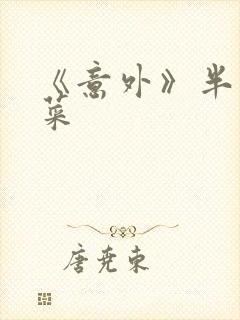 《意外》半
菜
唐尧东